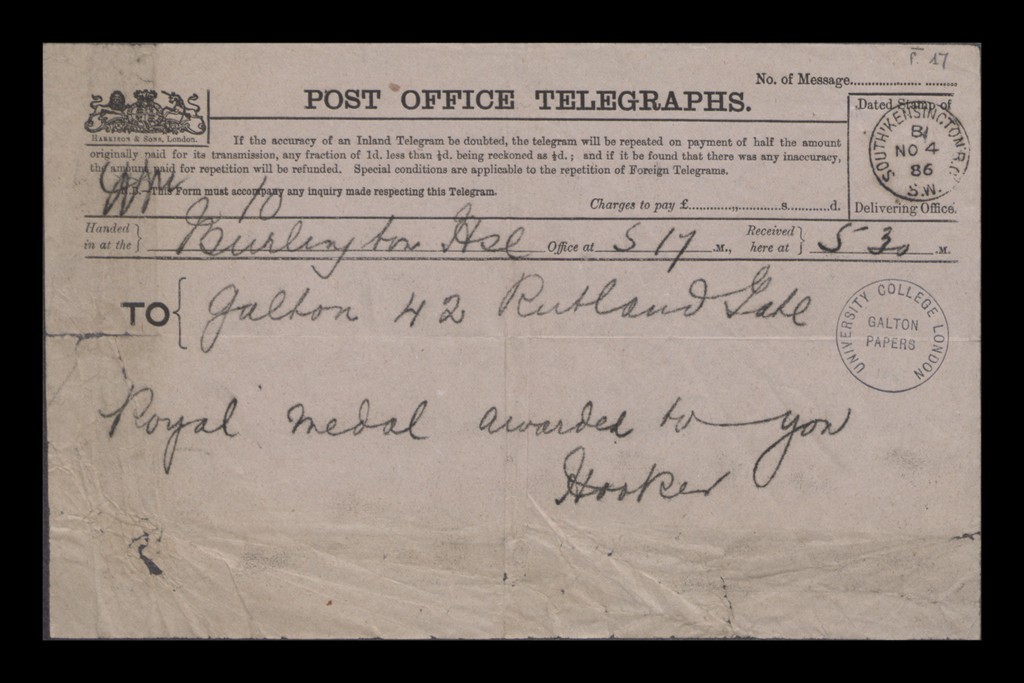 T. 17
No. of Message
POST OFFICE TELEGRAPHS.
HARRISON & SONS, London.
If the accuracy of an Inland Telegram be doubted, the telegram will be repeated on payment of half the amount
originally paid for its transmission, any fraction of 1d. less than ½d. being reckoned as ½d.; and if it be found that there was any inaccuracy,
the amount paid for repetition will be refunded. Special conditions are applicable to the repetition of Foreign Telegrams.
N.B.—This Form must accompany any inquiry made respecting this Telegram.
10
Charges to pay £ s. d.
Dated Stamp of
SOUTH KENSINGTON
B1
NO 4
86
S.W.
Delivering Office.
Handed in at the Burlington Hse Office at 5 17 .M., Received here at 5 30 .M.
TO Galton 42 Rutland Gate
UNIVERSITY COLLEGE LONDON
GALTON
PAPERS
Royal medal awarded to you
Hooker